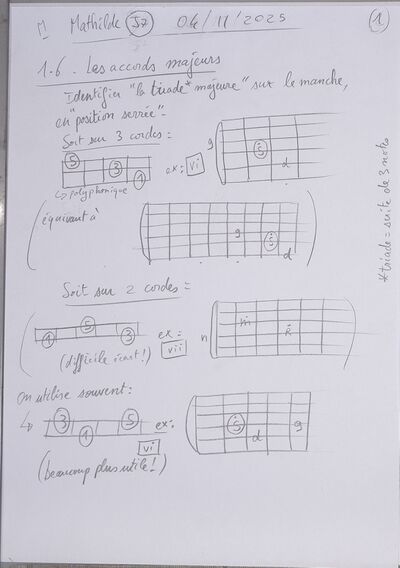 M Mathilde J7 04/11/2025 1
1.6. Les accords majeurs
Identifier "la triade* majeure" sur le manche,
en "position serrée".
Soit sur 3 cordes :
5 3 1
ex: vi
g
d
↳ polyphonique
(équivaut à
g
d
)
* triade = suite de 3 notes
Soit sur 2 cordes :
1 5 3
ex: vii
n m R
(difficile écart!)
On utilise souvent:
↳ 3 1 5
ex: vi
d g
(beaucoup plus utile!)